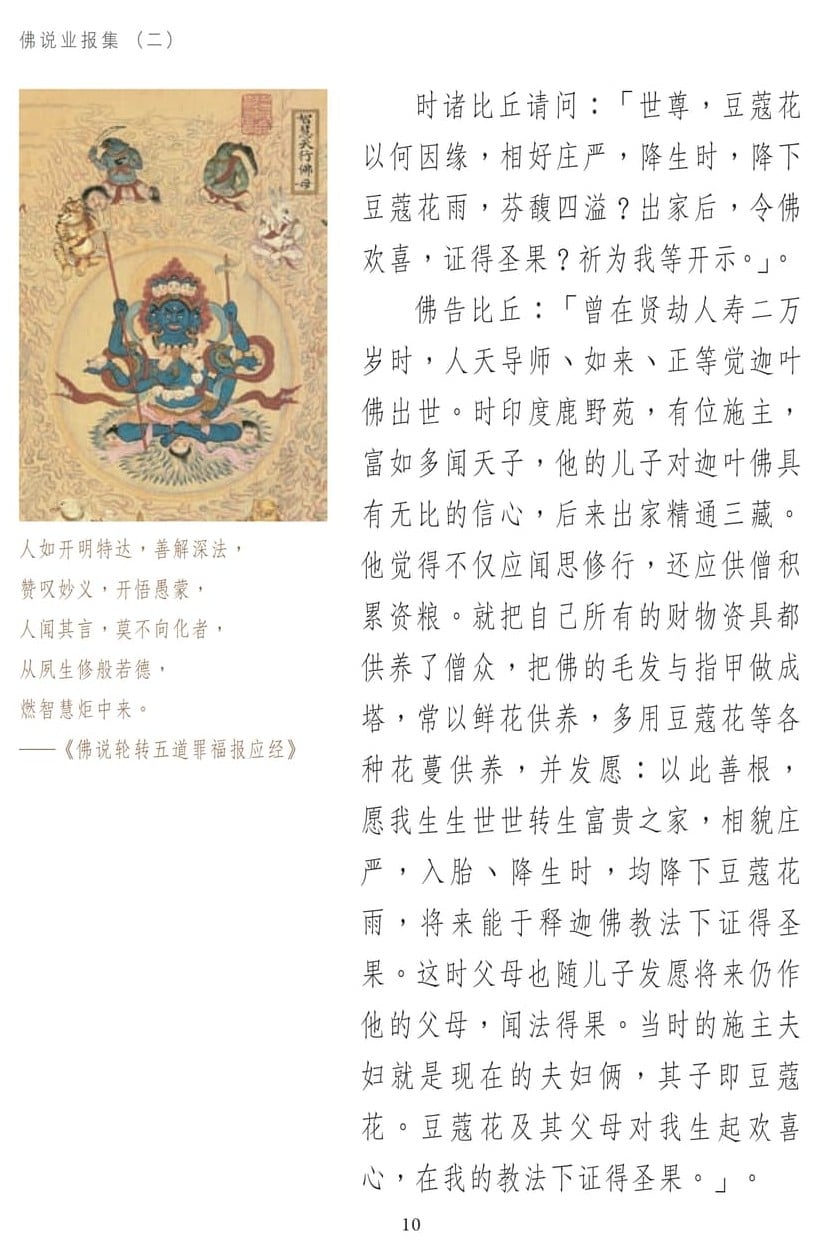 佛说业报集 （二）
智慧天行佛母
人如开明特达，善解深法，
赞叹妙义，开悟愚蒙，
人闻其言，莫不向化者，
从夙生修般若德，
燃智慧炬中来。
——《佛说轮转五道罪福报应经》
时诸比丘请问：「世尊，豆蔻花
以何因缘，相好庄严，降生时，降下
豆蔻花雨，芬馥四溢？出家后，令佛
欢喜，证得圣果？祈为我等开示。」。
佛告比丘：「曾在贤劫人寿二万
岁时，人天导师、如来、正等觉迦叶
佛出世。时印度鹿野苑，有位施主，
富如多闻天子，他的儿子对迦叶佛具
有无比的信心，后来出家精通三藏。
他觉得不仅应闻思修行，还应供僧积
累资粮。就把自己所有的财物资具都
供养了僧众，把佛的毛发与指甲做成
塔，常以鲜花供养，多用豆蔻花等各
种花蔓供养，并发愿：以此善根，
愿我生生世世转生富贵之家，相貌庄
严，入胎、降生时，均降下豆蔻花
雨，将来能于释迦佛教法下证得圣
果。这时父母也随儿子发愿将来仍作
他的父母，闻法得果。当时的施主夫
妇就是现在的夫妇俩，其子即豆蔻
花。豆蔻花及其父母对我生起欢喜
心，在我的教法下证得圣果。」。
10